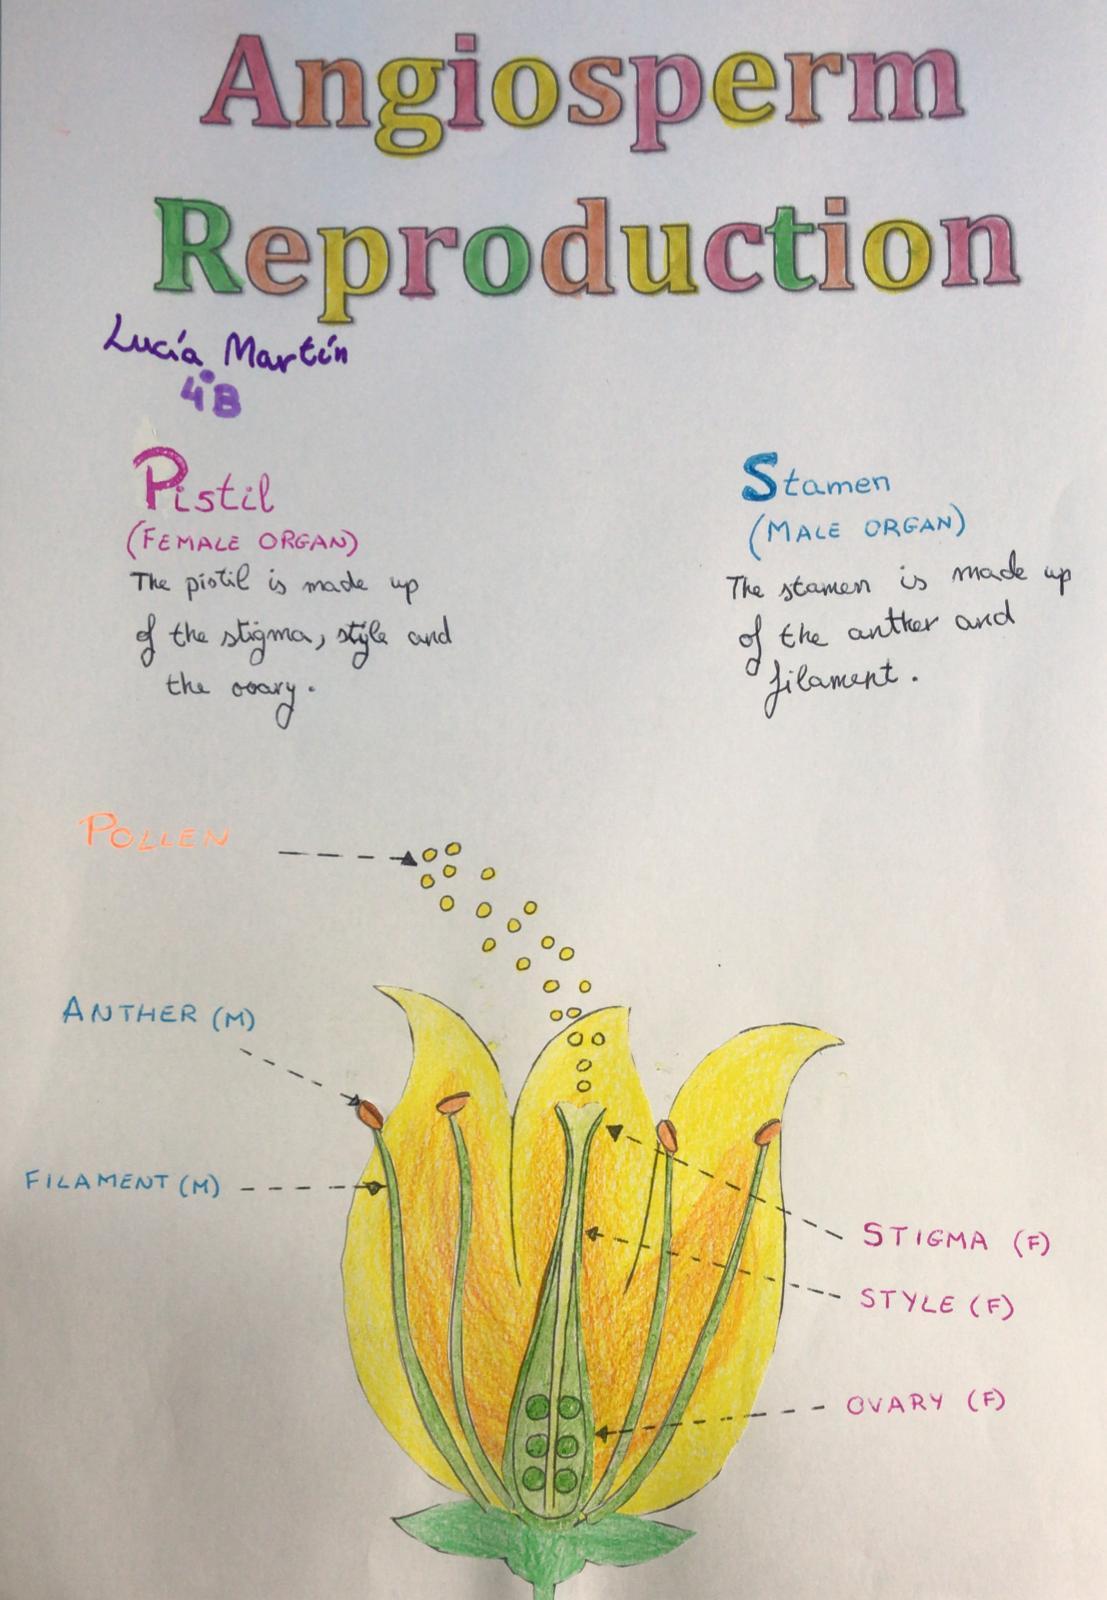 Angiosperm
Reproduction
Lucía Martín
4ºB
Pistil
(FEMALE ORGAN)
The pistil is made up
of the stigma, style and
the ovary.
Stamen
(MALE ORGAN)
The stamen is made up
of the anther and
filament.
POLLEN
ANTHER (M)
FILAMENT (M)
STIGMA (F)
STYLE (F)
OVARY (F)